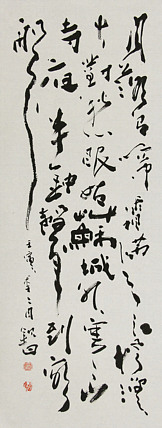 月落烏啼霜滿天江楓漁
火對愁眠姑蘇城外寒山
寺夜半鐘聲到客
船
壬寅